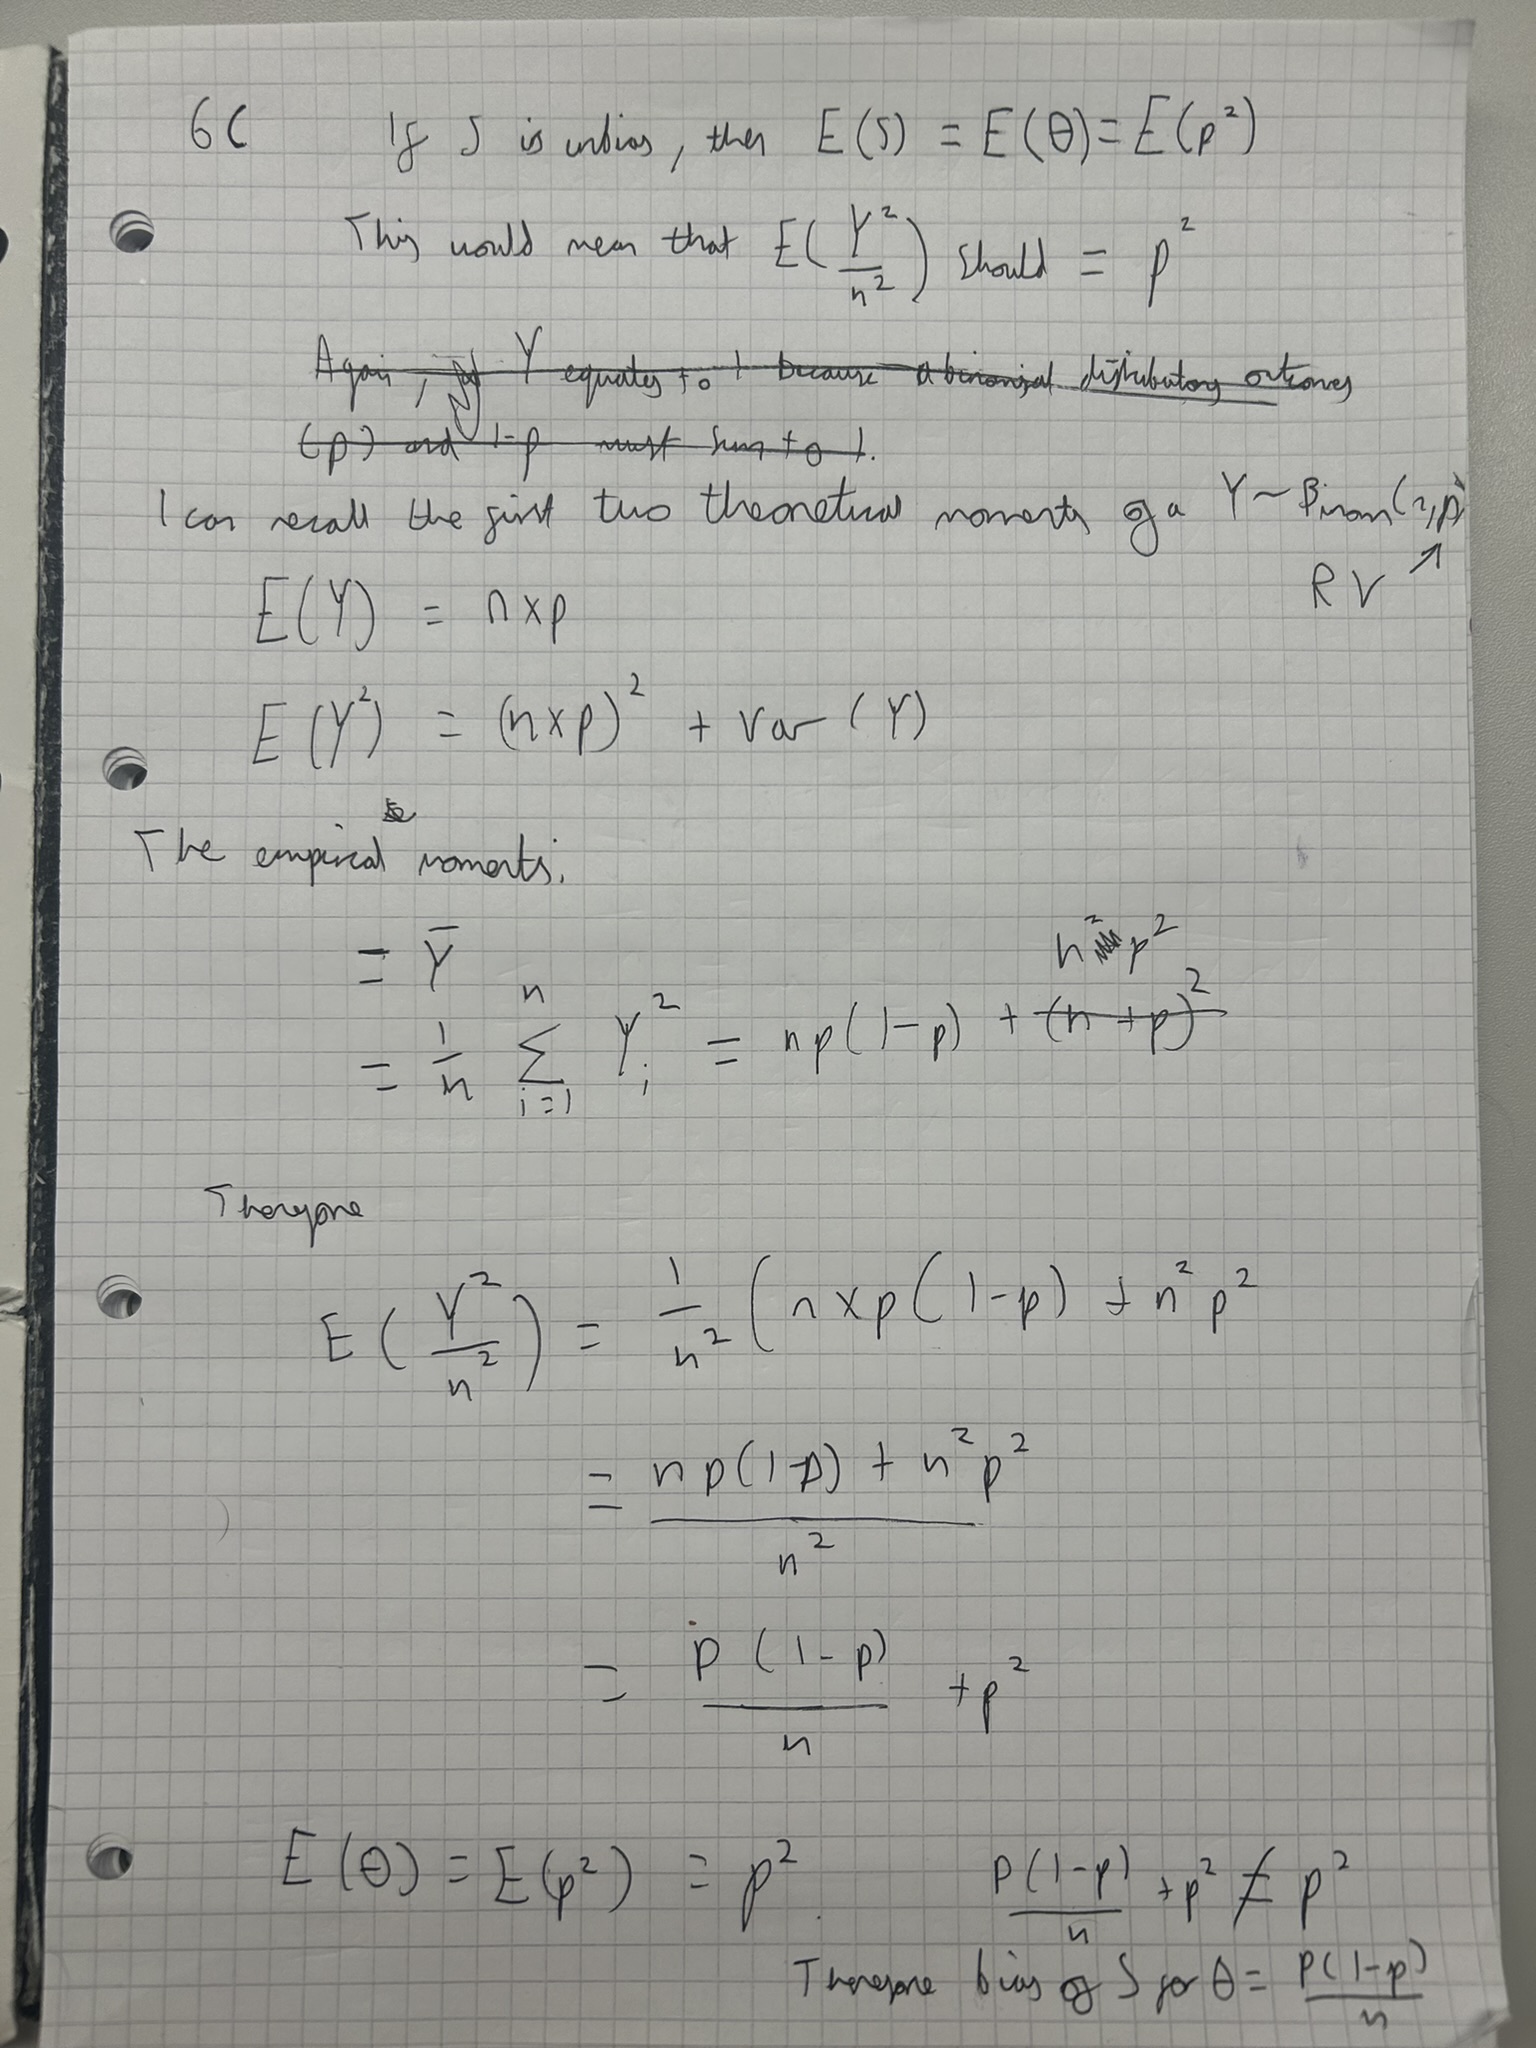 6C If S is unbias, then E(S) = E(θ) = E(p²)
This would mean that E(Y²/n²) should = p²
Again, Y equates to 1 because a binomial distributions outcomes
(p) and 1-p must sum to 1.
I can recall the first two theoretical moments of a Y ~ Binom(n,p)
RV ↗
E(Y) = n×p
E(Y²) = (n×p)² + Var(Y)
The empirical moments:
= Ȳ
n²p²
= 1/n Σ_{i=1}^{n} Y_i² = np(1-p) + (n+p)²
Therefore
E(Y²/n²) = 1/n² (n×p(1-p) + n²p²
= (np(1-p) + n²p²)/n²
= p(1-p)/n + p²
E(θ) = E(p²) = p². p(1-p)/n + p² ≠ p²
Therefore bias of S for θ = p(1-p)/n